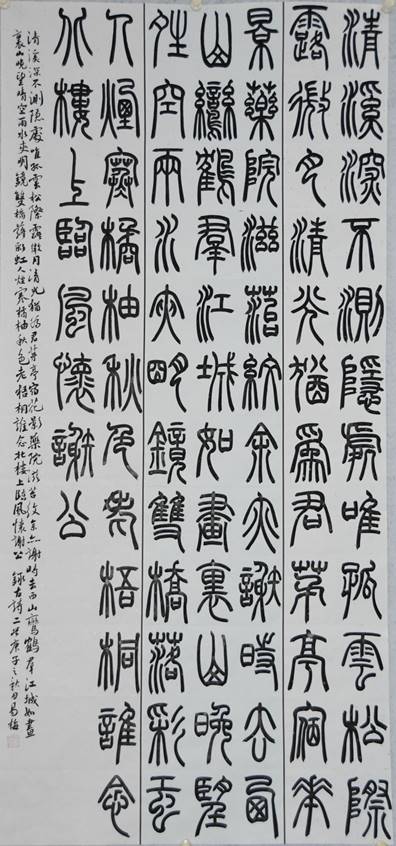 清溪深不測隱處唯孤雲松際
露微月清光猶為君茅亭宿花
影藥院滋苔紋余亦謝時去西
山鸞鶴羣江城如畫裏山晚望
晴空兩水夾明鏡雙橋落彩虹
人煙寒橘柚秋色老梧桐誰念
北樓上臨風懷謝公
清溪深不測隱處唯孤雲松際露微月清光猶為君茅亭宿花影藥院滋苔紋余亦謝時去西山鸞鶴羣江城如畫
裏山晚望晴空兩水夾明鏡雙橋落彩虹人煙寒橘柚秋色老梧桐誰念北樓上臨風懷謝公 錄古詩二首庚子之秋月易梅